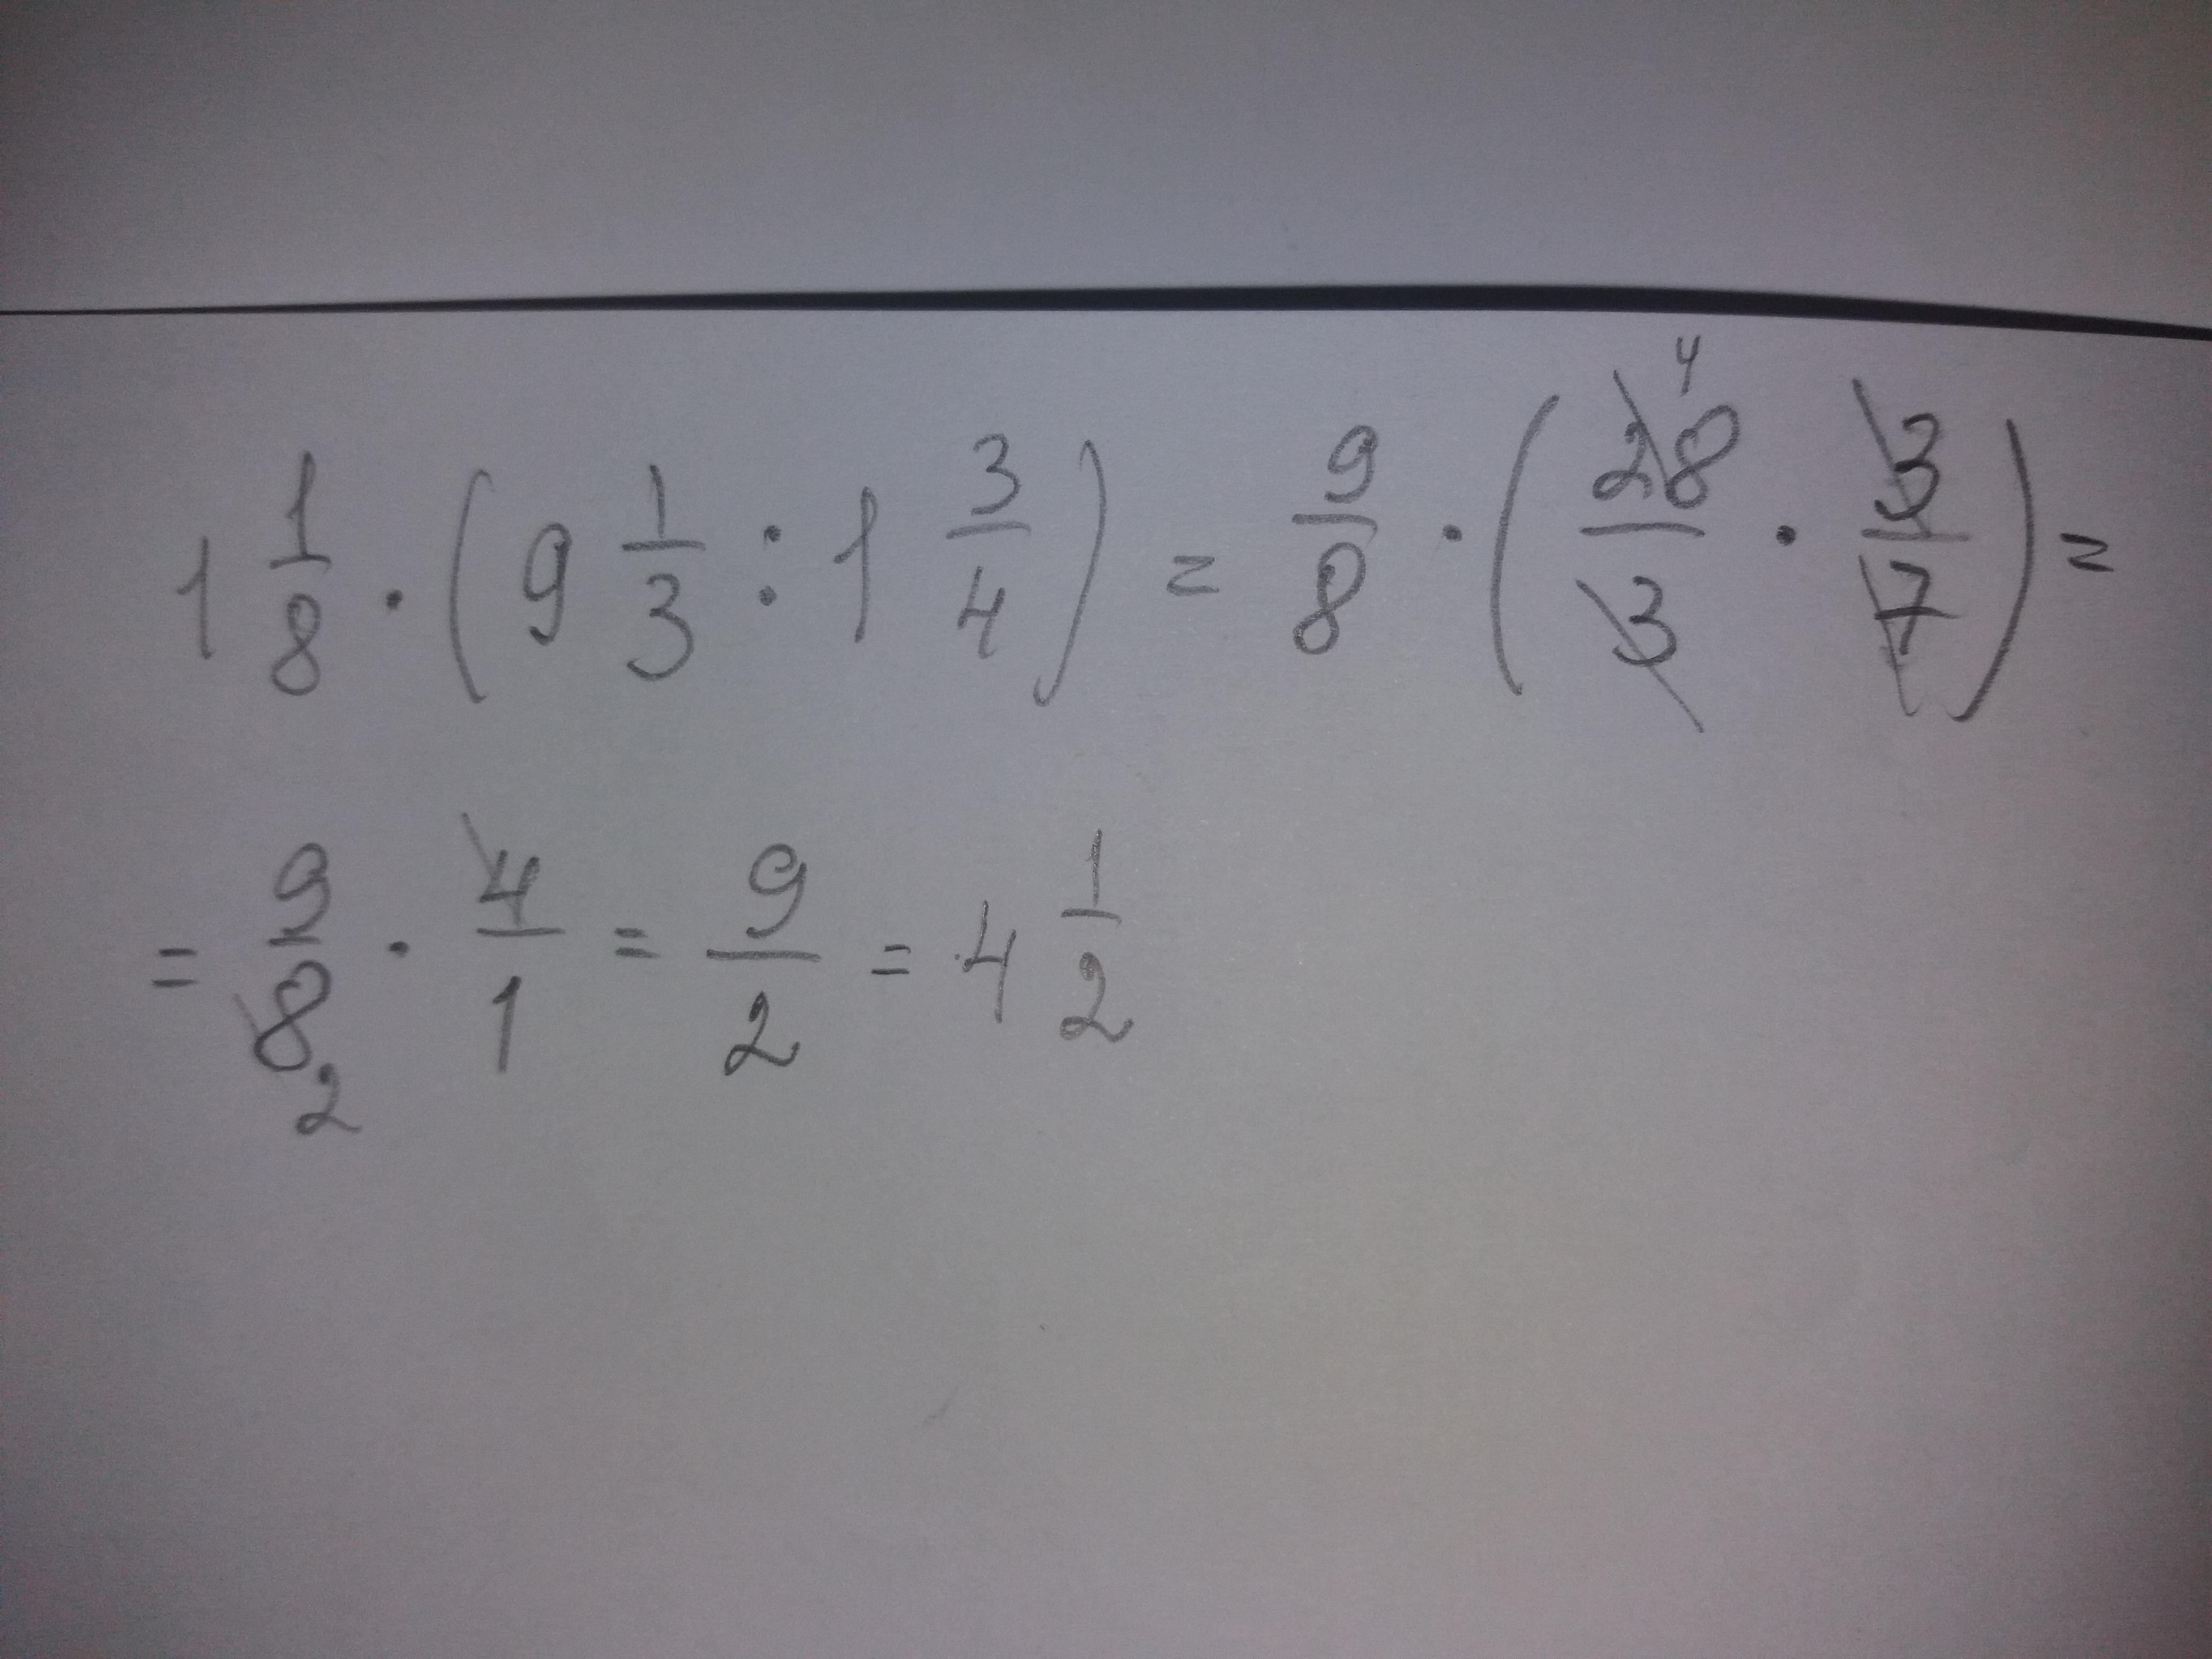 1 1/8 · (9 1/3 : 1 3/4) = 9/8 · (28/3 4 · 3/7) =
= 9/8 2 · 4/1 = 9/2 = 4 1/2